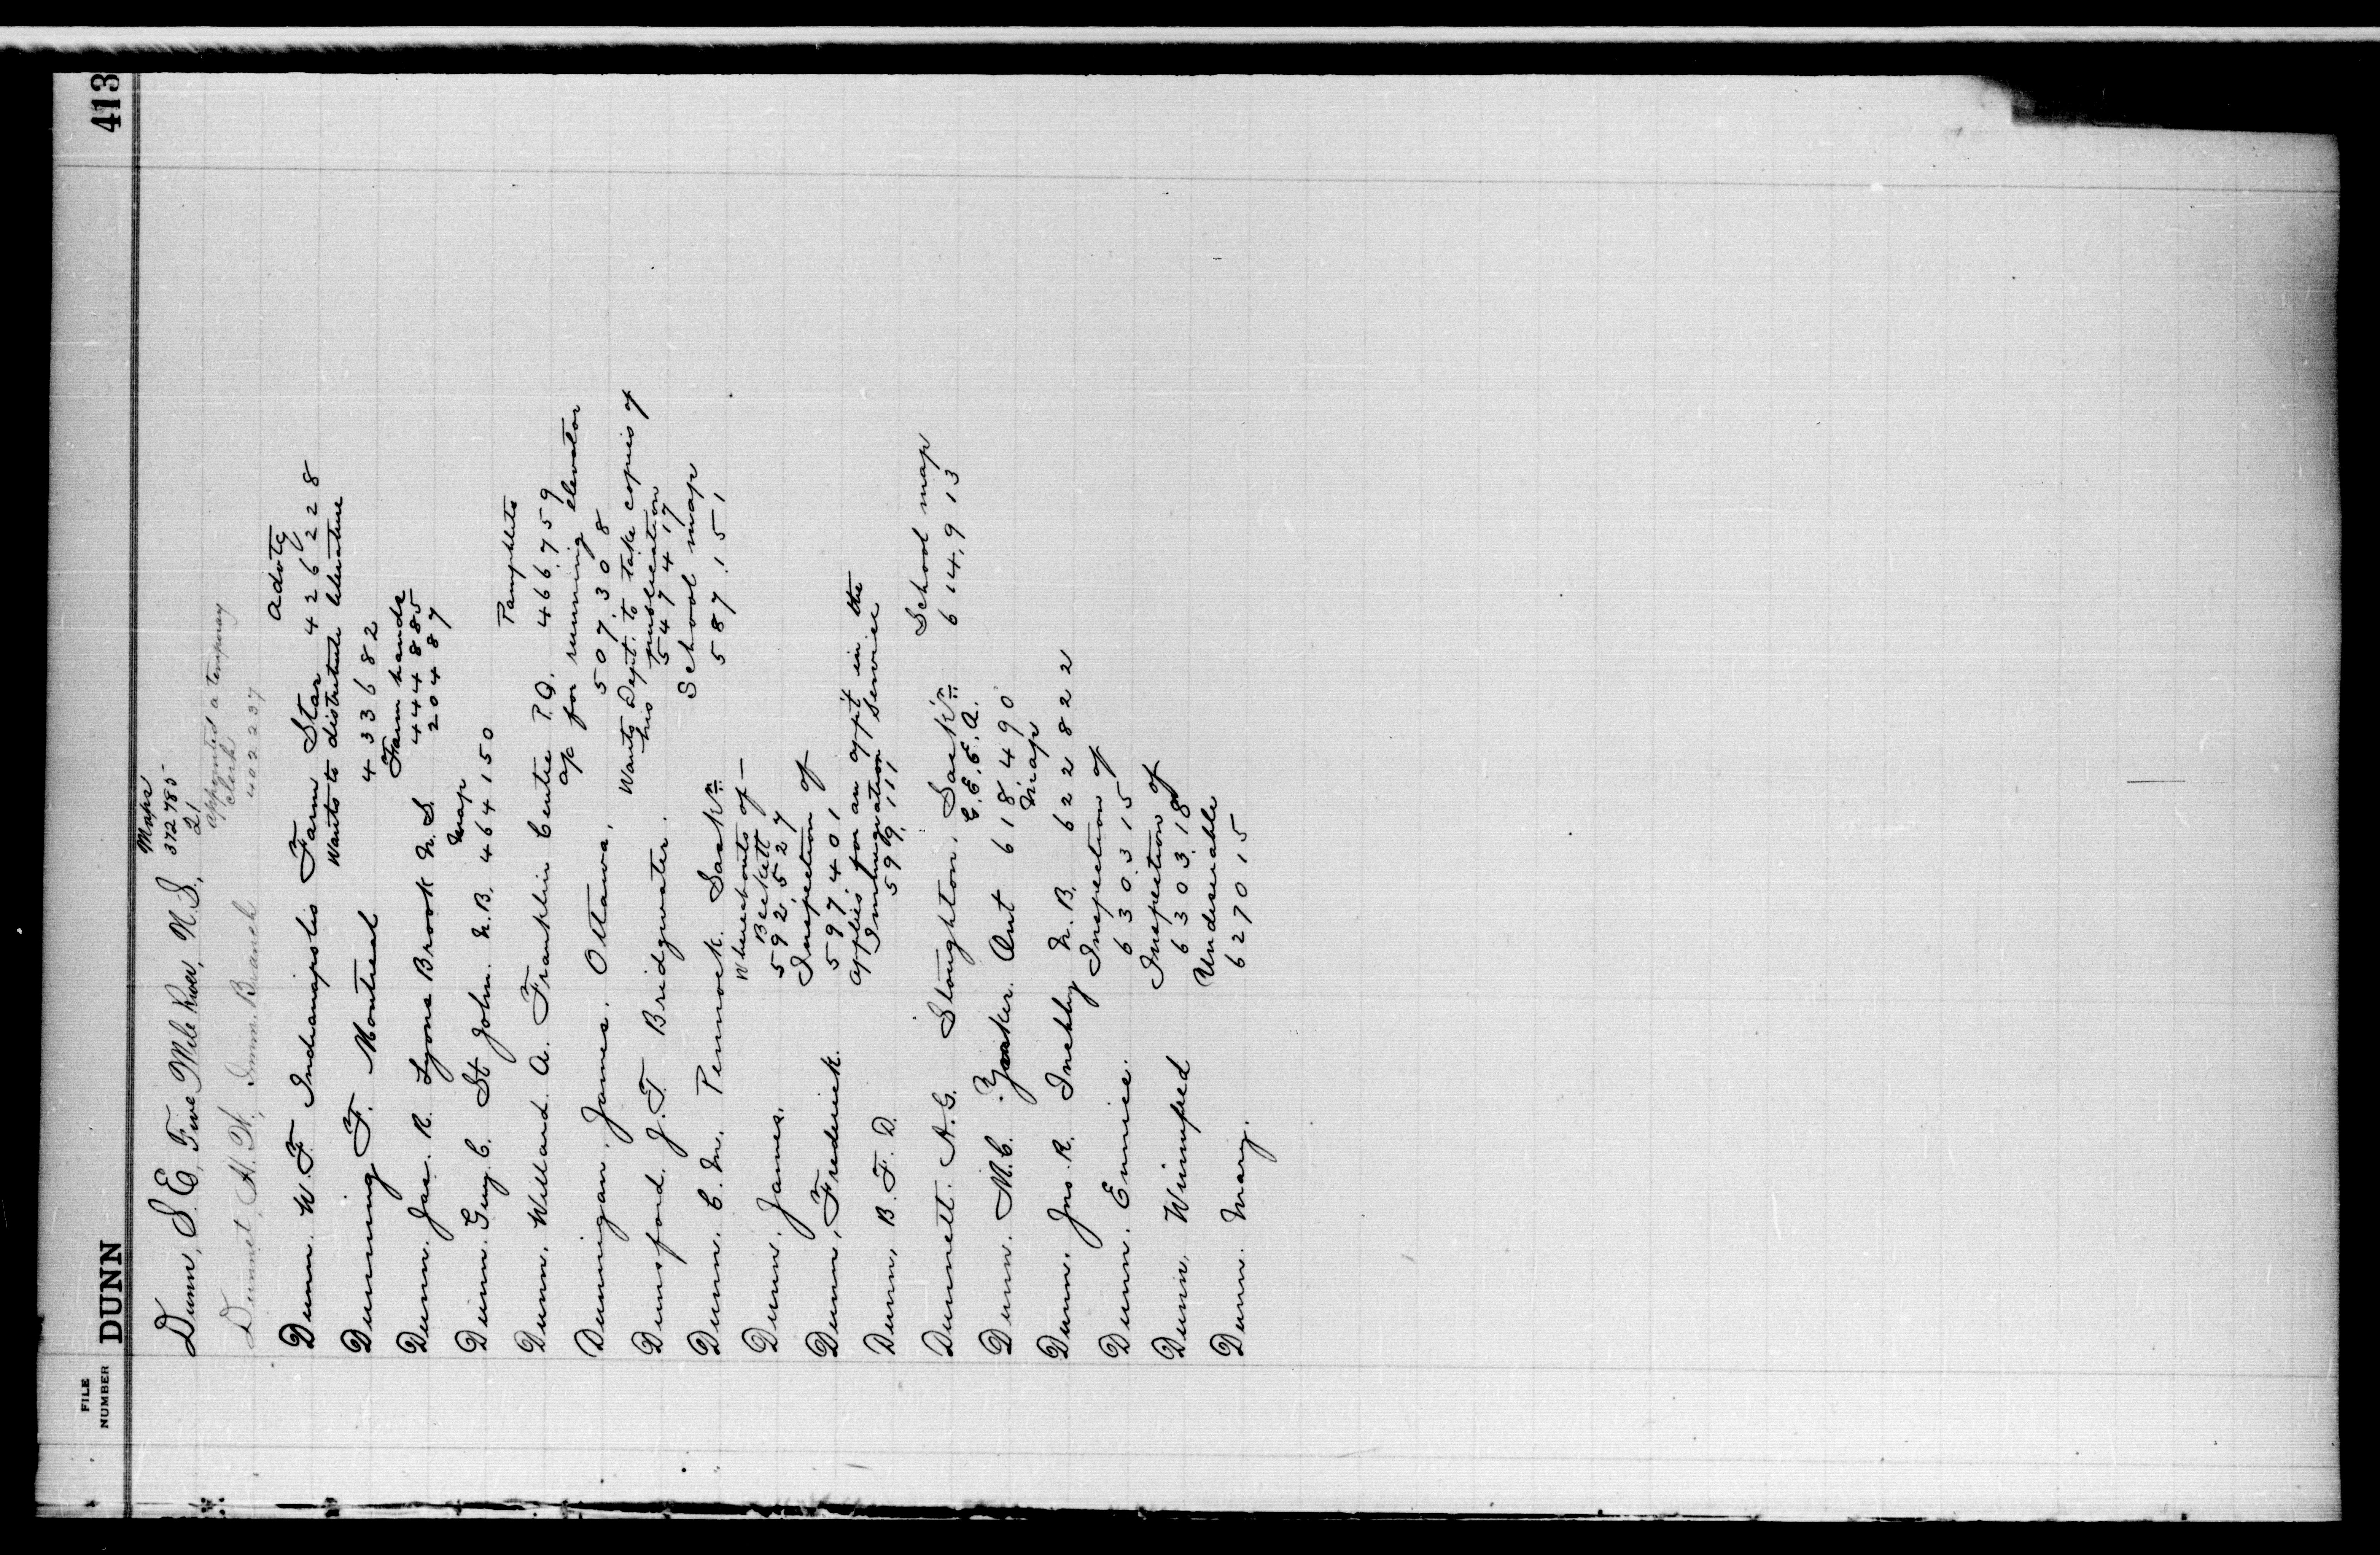 FILE
NUMBER
DUNN
413
Maps
Dunn, S. E., Five Mile River, N.S. 372785
21
appointed a temporary
Dunnet, H. H., Immn. Branch clerk
402237
advtg
Dunn. W. F. Indianapolis Farm Star 426228
Wants to distribute literature
Dunning F. Montreal 433682
Farm hands
444885
Dunn. Jas. R. Lyons Brook N.S. 20487
map
Dunn. Guy. C. St John. N.B. 464150
Pamphlets
Dunn. Willard. A. Franklin Centre P.Q. 466759
a/c for running elevator
Dunnigan. James. Ottawa. 507308
Wants Dept. to take copies of
his publication
Dunsford. J. T. Bridgwater. 547417
School map
Dunn. C. M. Pennock. Saskn 587151
Whereabouts of —
Beckett
Dunn. James. 592527
Inspection of
Dunn, Frederick. 597401
applies for an app't in the
Immigration Service
Dunn, B. F. D. 599111
School map
Dunnett. A. G. Stoughton. Sask'n 614913
C.E.E.A.
Dunn. M. C. Yarker. Ont 618490
map
Dunn. Jno. R. Inchby N.B. 622822
Inspection of
Dunn. Eunice. 630315
Inspection of
Dunn, Winnifred 630318
Undesirable
Dunn. Mary. 627015